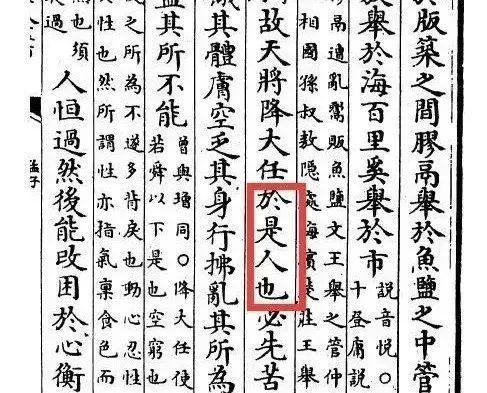 於版築之間膠鬲舉於魚鹽之中管
舉於海百里奚舉於市
說音悅○
十登庸說
鬲遭亂鬻販魚鹽文王舉之管仲
相國孫叔敖隱處海濱楚莊王舉
故天將降大任於是人也必先苦
其體膚空乏其身行拂亂其所為
曾與增同○降大任使
若舜以下是也空窮也
益其所不能
之所為不遂多背戾也動心忍性
性也然所謂性亦指氣稟食色而
人恒過然後能改困於心衡
也須
過
孟子